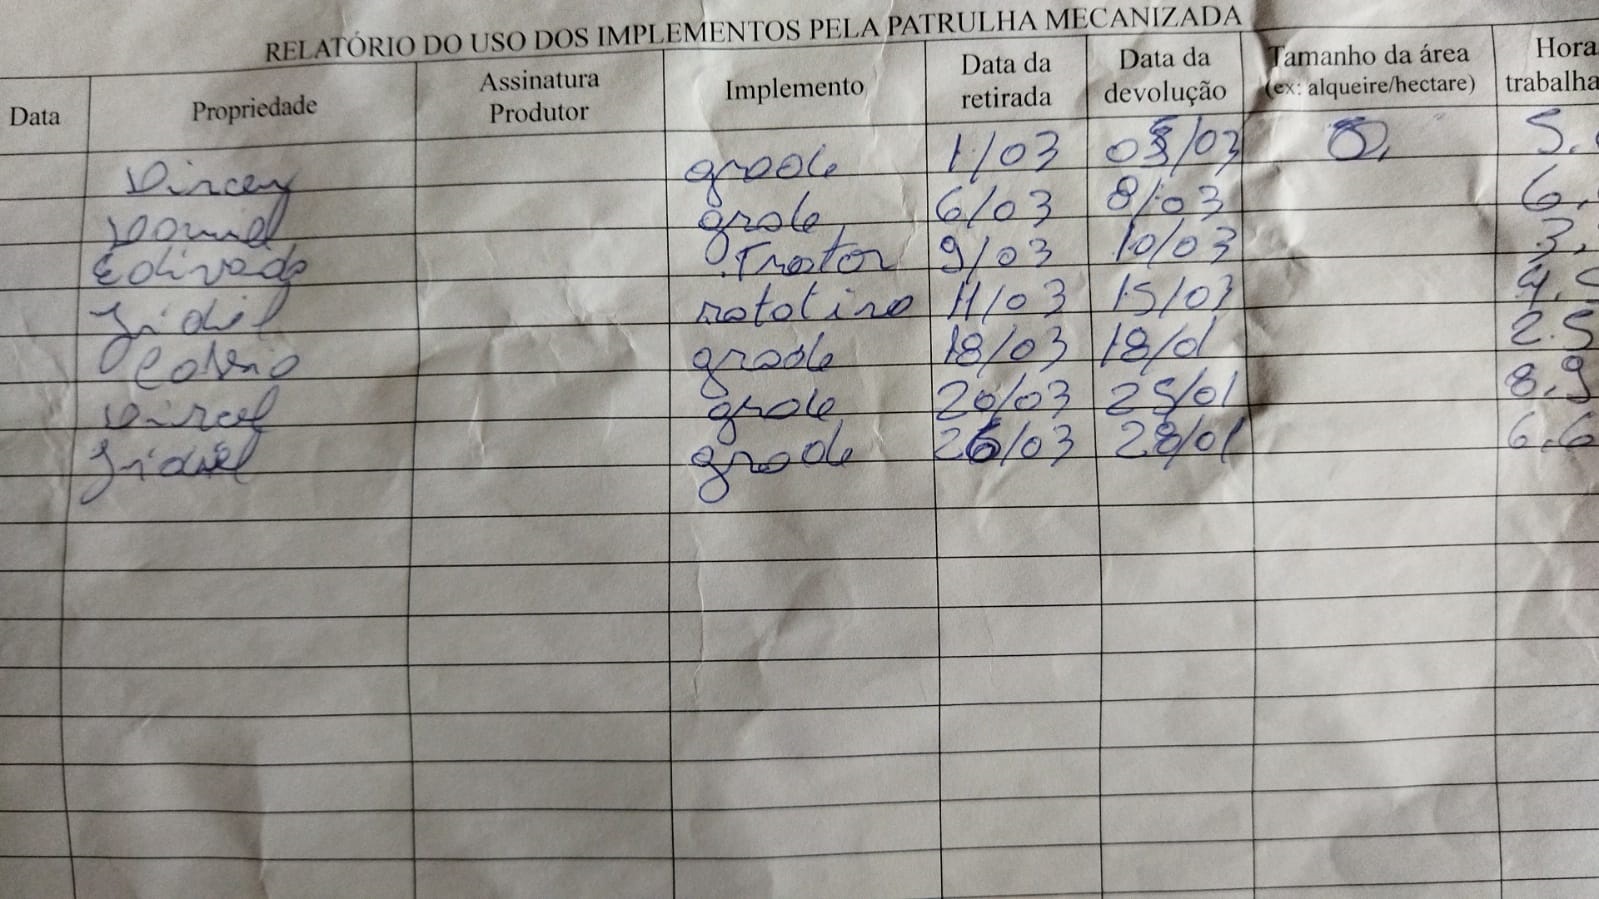 RELATÓRIO DO USO DOS IMPLEMENTOS PELA PATRULHA MECANIZADA
Data Propriedade Assinatura Produtor Implemento Data da retirada Data da devolução Tamanho da área (ex: alqueire/hectare) Hora trabalha
grade 1/03 /03 5.
grade 6/03 8/03 6.
Edivado Trator 9/03 10/03 3.
Jidiel rotativo 11/03 15/03 4.
grade 18/03 18/01 2.5
grade 20/03 25/01 8.9
Jidiel grade 26/03 28/01 6.6